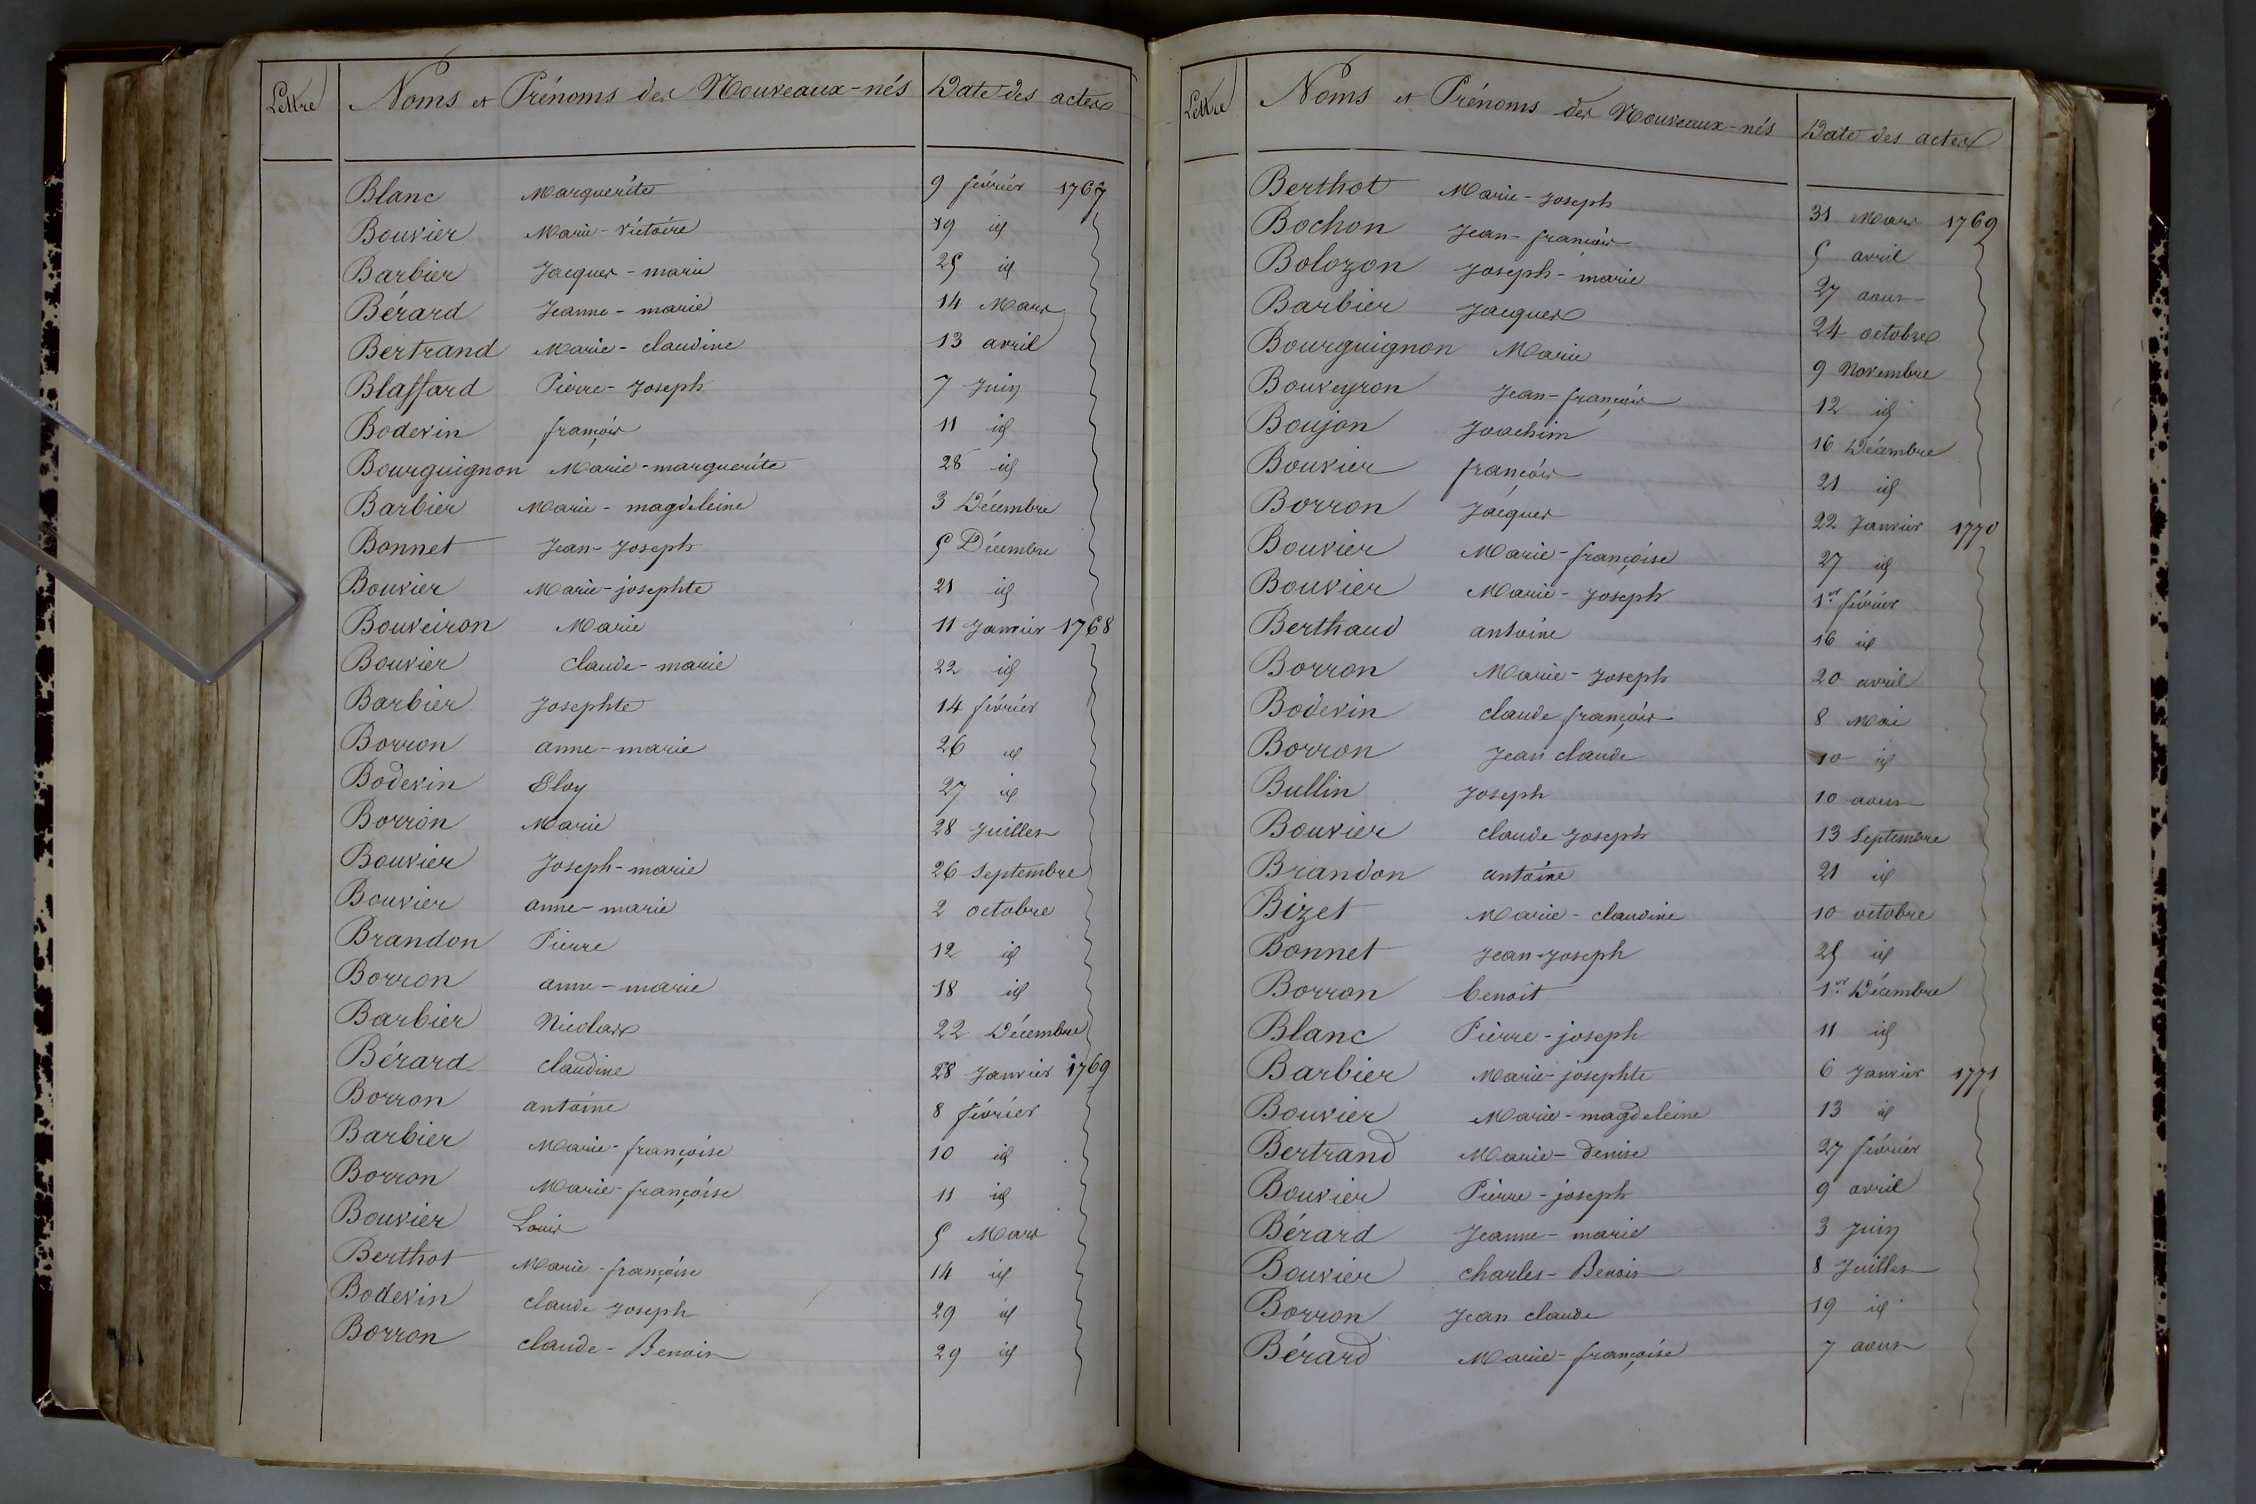 Lettre Noms et Prénoms des Nouveaux-nés Date des actes
Blanc Marguerite 9 février 1767
Bouvier Marie-victoire 19 id
Barbier Jacques-marie 25 id
Bérard Jeanne-marie 14 Mars
Bertrand Marie-claudine 13 avril
Blaffard Pierre-Joseph 7 Juin
Bodevin françois 11 id
Bourguignon Marie-marguerite 28 id
Barbier Marie-magdeleine 3 Décembre
Bonnet Jean-Joseph 5 Décembre
Bouvier Marie-josephte 21 id
Bouveiron Marie 11 Janvier 1768
Bouvier claude-marie 22 id
Barbier Josephte 14 février
Borron anne-marie 26 id
Bodevin Eloy 27 id
Borron Marie 28 Juillet
Bouvier Joseph-marie 26 Septembre
Bouvier anne-marie 2 octobre
Brandon Pierre 12 id
Borron anne-marie 18 id
Barbier Nicolas 22 Décembre
Bérard claudine 28 Janvier 1769
Borron antoine 8 février
Barbier Marie-françoise 10 id
Borron Marie-françoise 11 id
Bouvier Louis 5 Mars
Berthot Marie-françoise 14 id
Bodevin claude Joseph 29 id
Borron claude-Benoit 29 id
Lettre Noms et Prénoms des Nouveaux-nés Date des actes
Berthot Marie-Joseph 31 Mars 1769
Bochon Jean-françois 5 avril
Bolozon Joseph-marie 27 aout
Barbier Jacques 24 octobre
Bourguignon Marie 9 Novembre
Bouveyron Jean-françois 12 id
Boujon Joachim 16 Décembre
Bouvier françois 21 id
Borron Jacques 22 Janvier 1770
Bouvier Marie-françoise 27 id
Bouvier Marie-Joseph 1er février
Berthaud antoine 16 id
Borron Marie-Joseph 20 avril
Bodevin claude françois 8 Mai
Borron Jean claude 10 id
Bullin Joseph 10 aout
Bouvier claude Joseph 13 Septembre
Brandon antoine 21 id
Bizet Marie-claudine 10 octobre
Bonnet Jean-Joseph 25 id
Borron benoit 1er Décembre
Blanc Pierre-joseph 11 id
Barbier Marie-josephte 6 Janvier 1771
Bouvier Marie-magdeleine 13 id
Bertrand Marie-denise 27 février
Bouvier Pierre-joseph 9 avril
Bérard Jeanne-marie 3 Juin
Bouvier charles-Benoit 8 Juillet
Borron Jean claude 19 id
Bérard Marie-françoise 7 aout